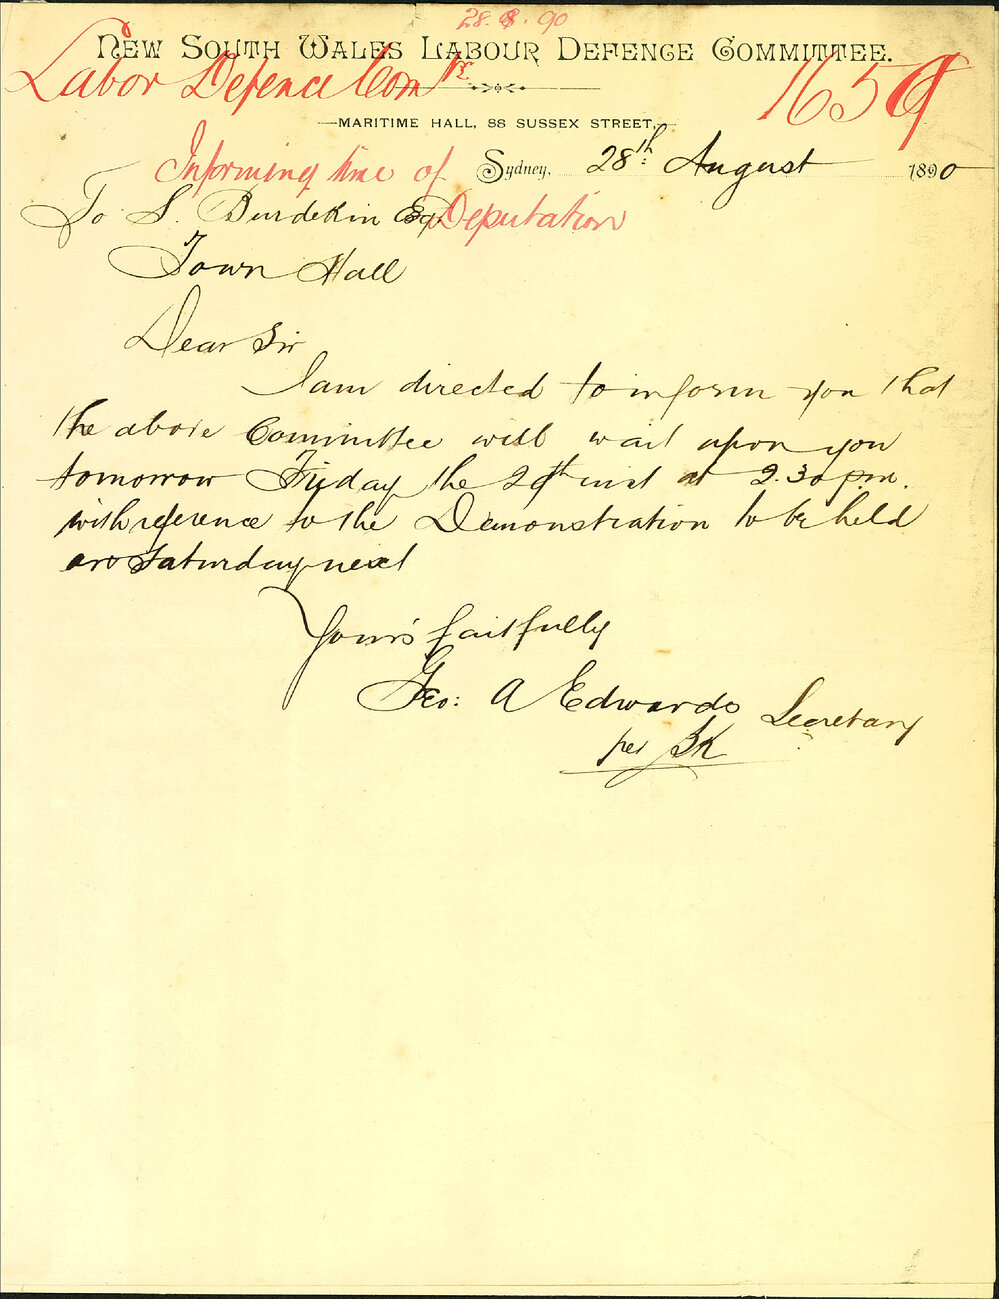 28.8.90
NEW SOUTH WALES LABOUR DEFENCE COMMITTEE.
Labor Defence Comtee
1659
MARITIME HALL, 88 SUSSEX STREET,
Informing time of
Sydney, 28th August 1890
To S. Burdekin Esq Deputation
Town Hall
Dear Sir
I am directed to inform you that
the above Committee will wait upon you
tomorrow Friday the 29th inst at 2.30 p.m.
with reference to the Demonstration to be held
on Saturday next
Yours faithfully
Geo: A Edwards Secretary
per JK